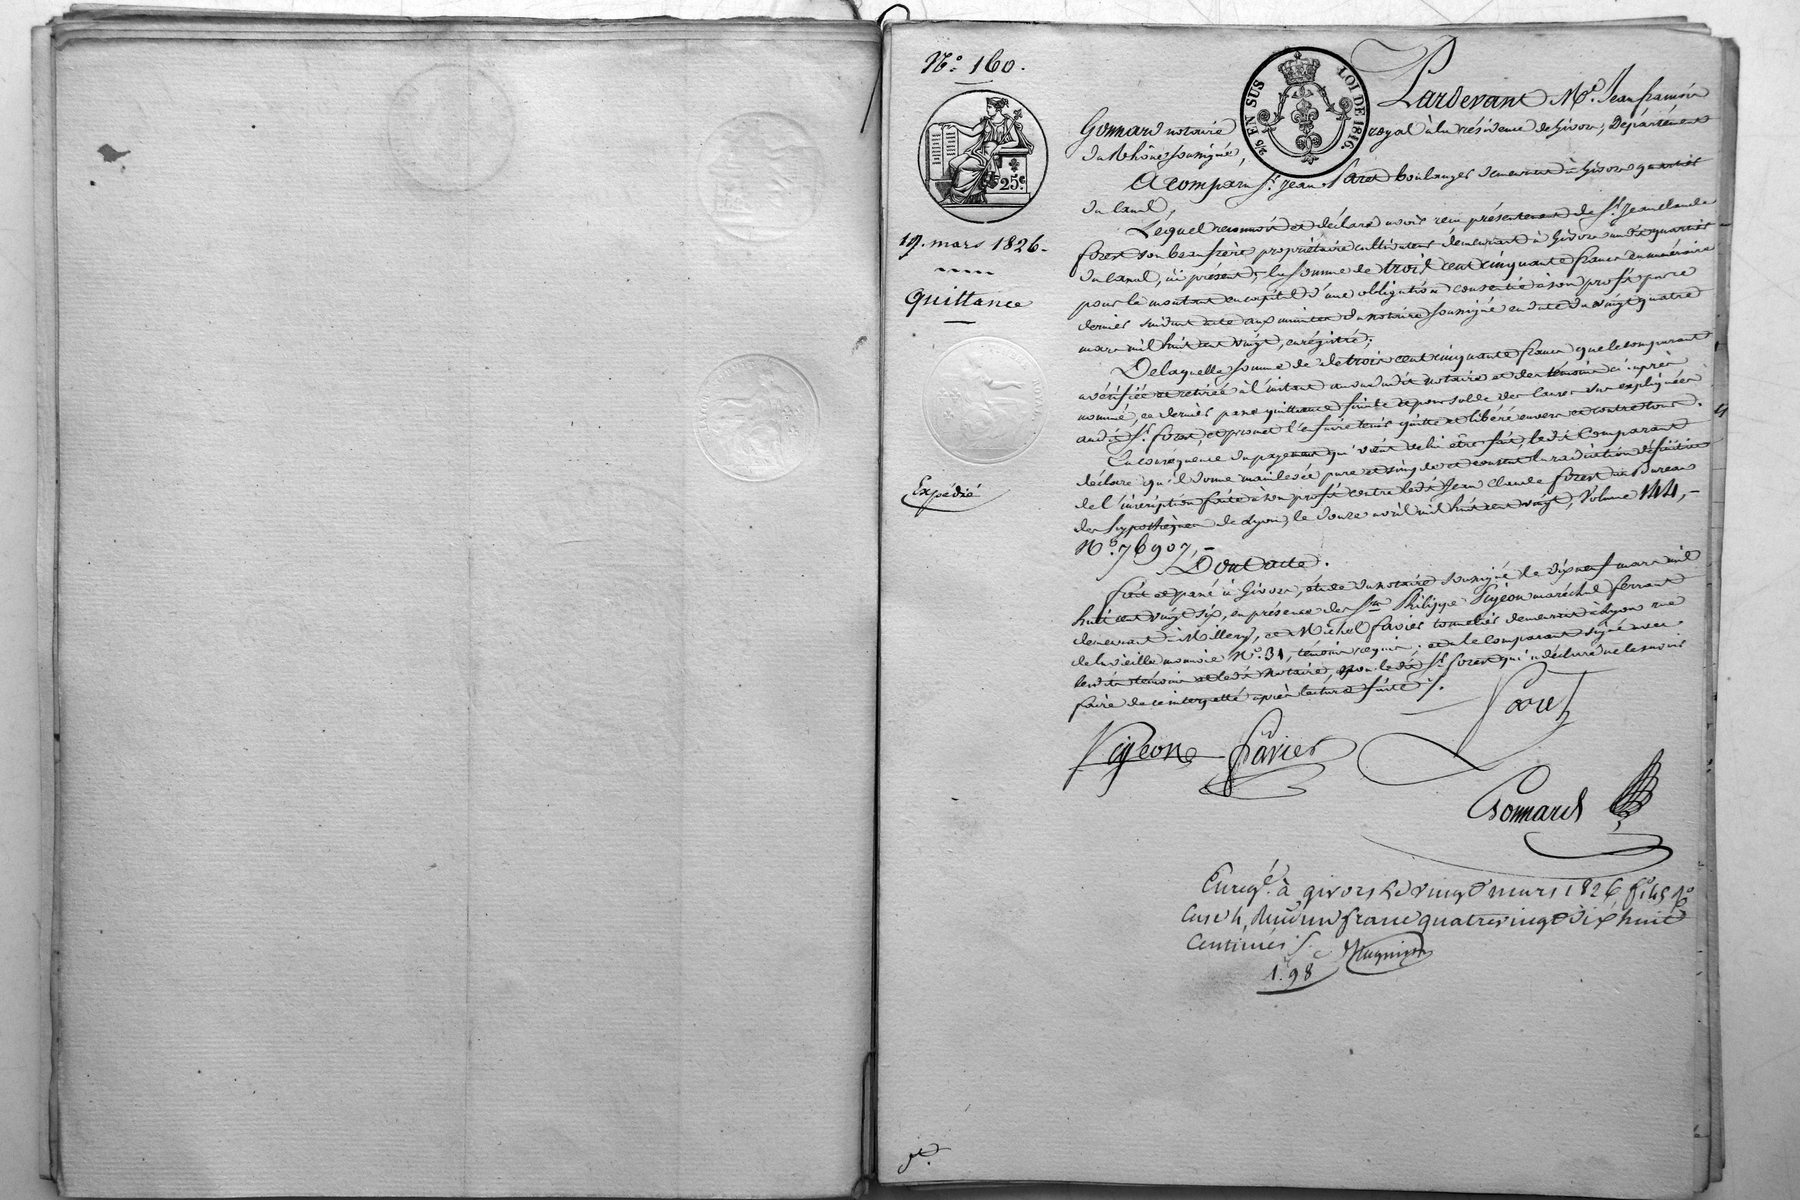 N.° 160.
25.c
2/5 EN SUS
LOI DE 1816.
19. mars 1826.
Quittance
Expédié
Pardevant M.e Jean françois
Gonnard notaire royal à la résidence de Givors, Département
du Rhône soussigné,
A comparu S.r Jean Paret boulanger demeurant à Givors quartier
du Canal,
Lequel reconnoit et déclare avoir reçu présentement de S.r Jean Claude
forest son beaufrère propriétaire cultivateur demeurant à Givors audit quartier
du Canal, ici présent, la somme de trois cent cinquante francs en numéraire
pour le montant en capital d'une obligation consentie à son profit par ce
dernier suivant acte aux minutes du notaire soussigné en date du vingt quatre
mars mil huit cent vingt, enrégistré;
De laquelle somme de trois cent cinquante francs que le comparant
a vérifiée et retirée à l'instant au vu dudit notaire et des témoins ci après
nommés, ce dernier passe quittance finale et pour solde des causes sus expliquées
audit S.r forest, et promet l'en faire tenir quitte et libéré envers et contre tous.
En conséquence du payement qui vient de lui être fait, ledit Comparant
déclare qu'il donne mainlevée pure et simple et consent la radiation définitive
de l'inscription faite à son profit contre ledit Jean Claude forest au Bureau
des hypothèques de Lyon, le douze avril mil huit cent vingt, Volume 144,
N.° 76907,
Dont acte.
fait et passé à Givors, étude du notaire soussigné le dix neuf mars mil
huit cent vingt six, en présence des S.rs Philippe Pigeon maréchal ferrant
demeurant à Millery, et Michel favier tonnelier demeurant à Lyon rue
de la vieille monnoie N.° 31, témoins requis; et a le comparant signé avec
lesdits témoins et ledit Notaire, non ledit S.r forest qui a déclaré ne le savoir
faire de ce interpellé après lecture faite.
Paret
Pigeon favier
Gonnard
Enregé. à givors le vingt mars 1826, f.° 145 v°
Case 4, Reçu un franc quatre vingt dix huit
Centimes.
1.f 98c